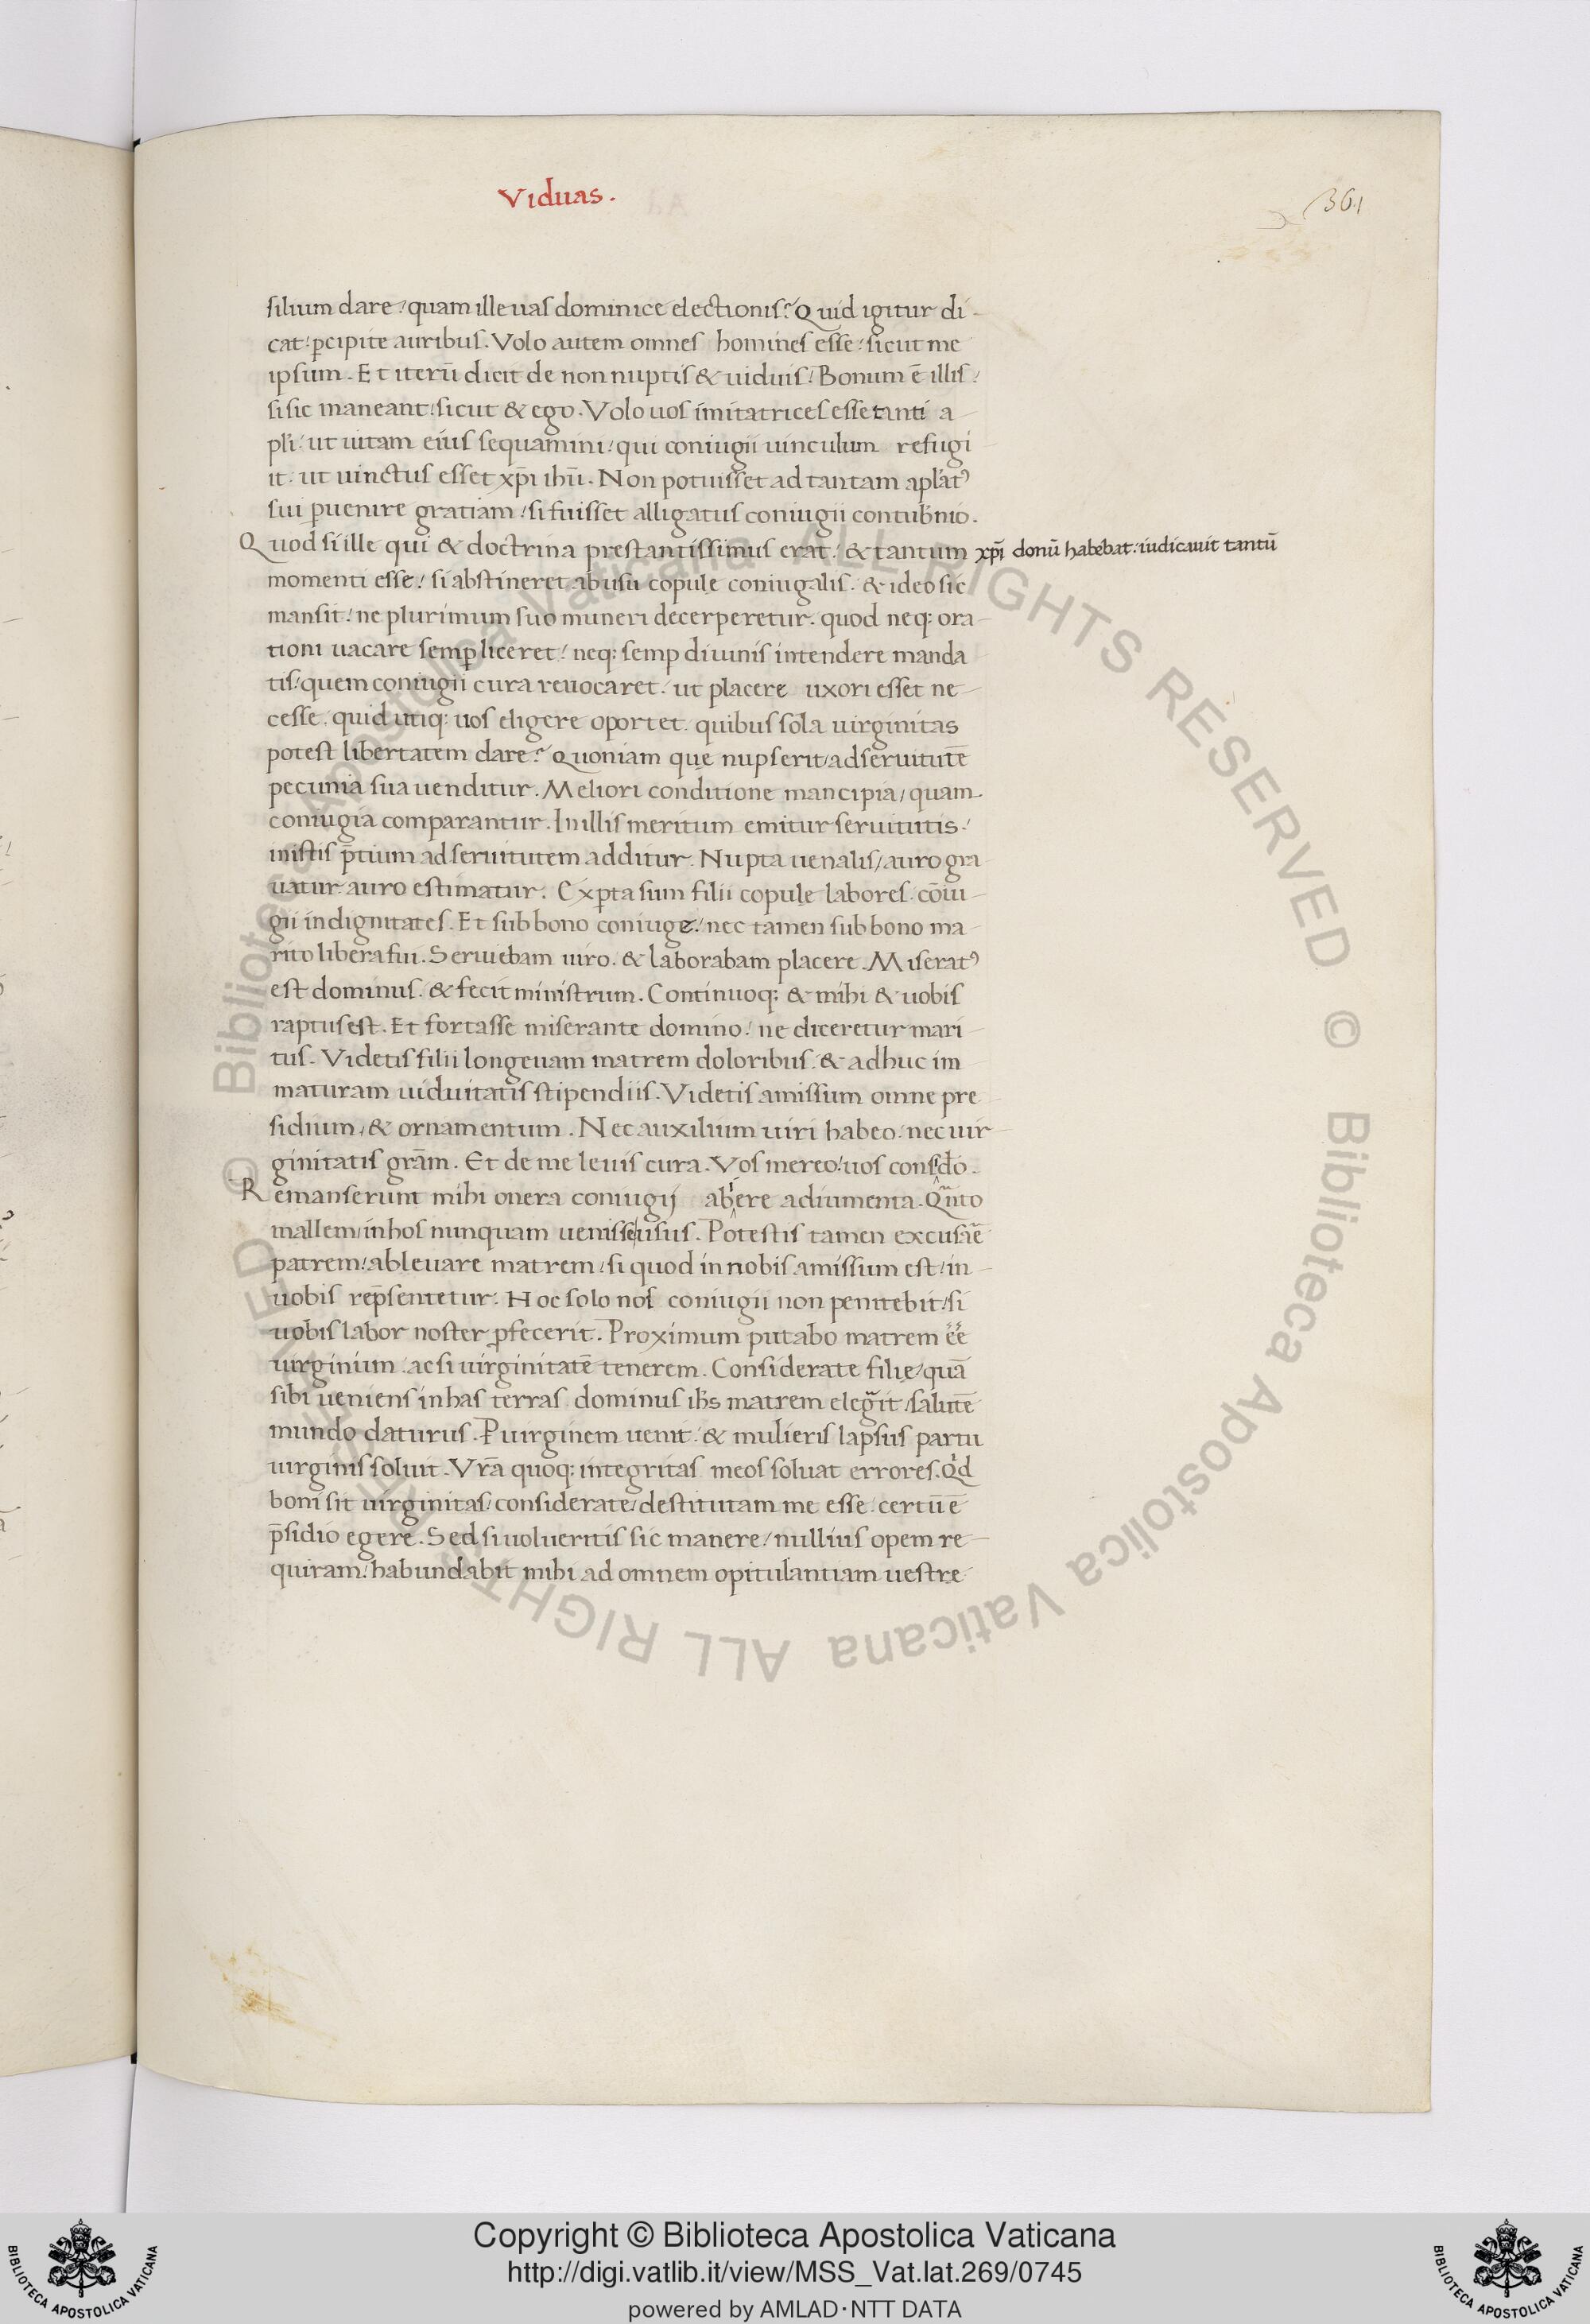 Viduas.
361
silium dare / quam ille uas dominice electionis? Quid igitur di-
cat / p̄cipite auribus. Volo autem omnes homines esse / sicut me
ipsum. Et iterū dicit de non nuptis & uiduis / Bonum ē illis /
si sic maneant / sicut & ego. Volo uos imitatrices esse tanti a-
pl̄i / ut uitam eius sequamini / qui coniugii uinculum refugi-
it. ut uinctus esset xp̄i ihū. Non potuisset ad tantam apl̄atꝰ
sui ꝑuenire gratiam / si fuisset alligatus coniugii contub̄nio.
Quod si ille qui & doctrina prestantissimus erat / & tantum xp̄i donū habebat / iudicauit tantū
momenti esse / si abstineret ab usu copulę coniugalis. & ideo sic
mansit / ne plurimum suo muneri decerperetur. quod neq: ora-
tioni uacare semꝑ liceret / neq: semꝑ diuinis intendere manda-
tis / quem coniugii cura reuocaret. ut placere uxori esset ne-
cesse. quid utiq: uos eligere oportet. quibus sola uirginitas
potest libertatem dare? Quoniam quę nupserit / ad seruitutē
pecunia sua uenditur. Meliori conditione mancipia / quam
coniugia comparantur. In illis meritum emitur seruitutis /
in istis p̄tium ad seruitutem additur. Nupta uenalis / auro gra-
uatur. auro estimatur. Exꝑta sum filii copulę labores. cōiu-
gii indignitates. Et sub bono coniuge / nec tamen sub bono ma-
rito libera fui. Seruiebam uiro. & laborabam placere. Miseratꝰ
est dominus. & fecit ministrum. Continuoq: & mihi & uobis
raptus est. Et fortasse miserante domino / ne diceretur mari-
tus. Videtis filii longeuam matrem doloribus. & adhuc im-
maturam uiduitatis stipendiis. Videtis amissum omne pre-
sidium / & ornamentum. Nec auxilium uiri habeo. nec uir-
ginitatis grām. Et de me leuis cura. Vos mereo / uos consido.
Remanserunt mihi onera coniugij abere adiumenta. Qnto
mallem / in hos nunquam uenisse usus. Potestis tamen excusare
patrem / ableuare matrem / si quod in nobis amissum est / in
uobis rep̄sentetur. Hoc solo nos coniugii non penitebit / si
uobis labor noster ꝓfecerit. Proximum putabo matrem ēē
uirginum. ac si uirginitatē tenerem. Considerate filię / quā
sibi ueniens in has terras dominus ihs matrem elegit / salutē
mundo daturus. P uirginem uenit. & mulieris lapsus partu
uirginis soluit. Vrā quoq: integritas meos soluat errores. Qd
boni sit uirginitas / considerate / destitutam me esse. certū ē
p̄sidio egere. Sed si uolueritis sic manere / nullius opem re-
quiram / habundabit mihi ad omnem opitulantiam uestrę
© Biblioteca Apostolica Vaticana ALL RIGHTS RESERVED © Biblioteca Apostolica Vaticana ALL RIGHTS RESERVED
Copyright © Biblioteca Apostolica Vaticana
http://digi.vatlib.it/view/MSS_Vat.lat.269/0745
powered by AMLAD·NTT DATA
BIBLIOTECA APOSTOLICA VATICANA
BIBLIOTECA APOSTOLICA VATICANA